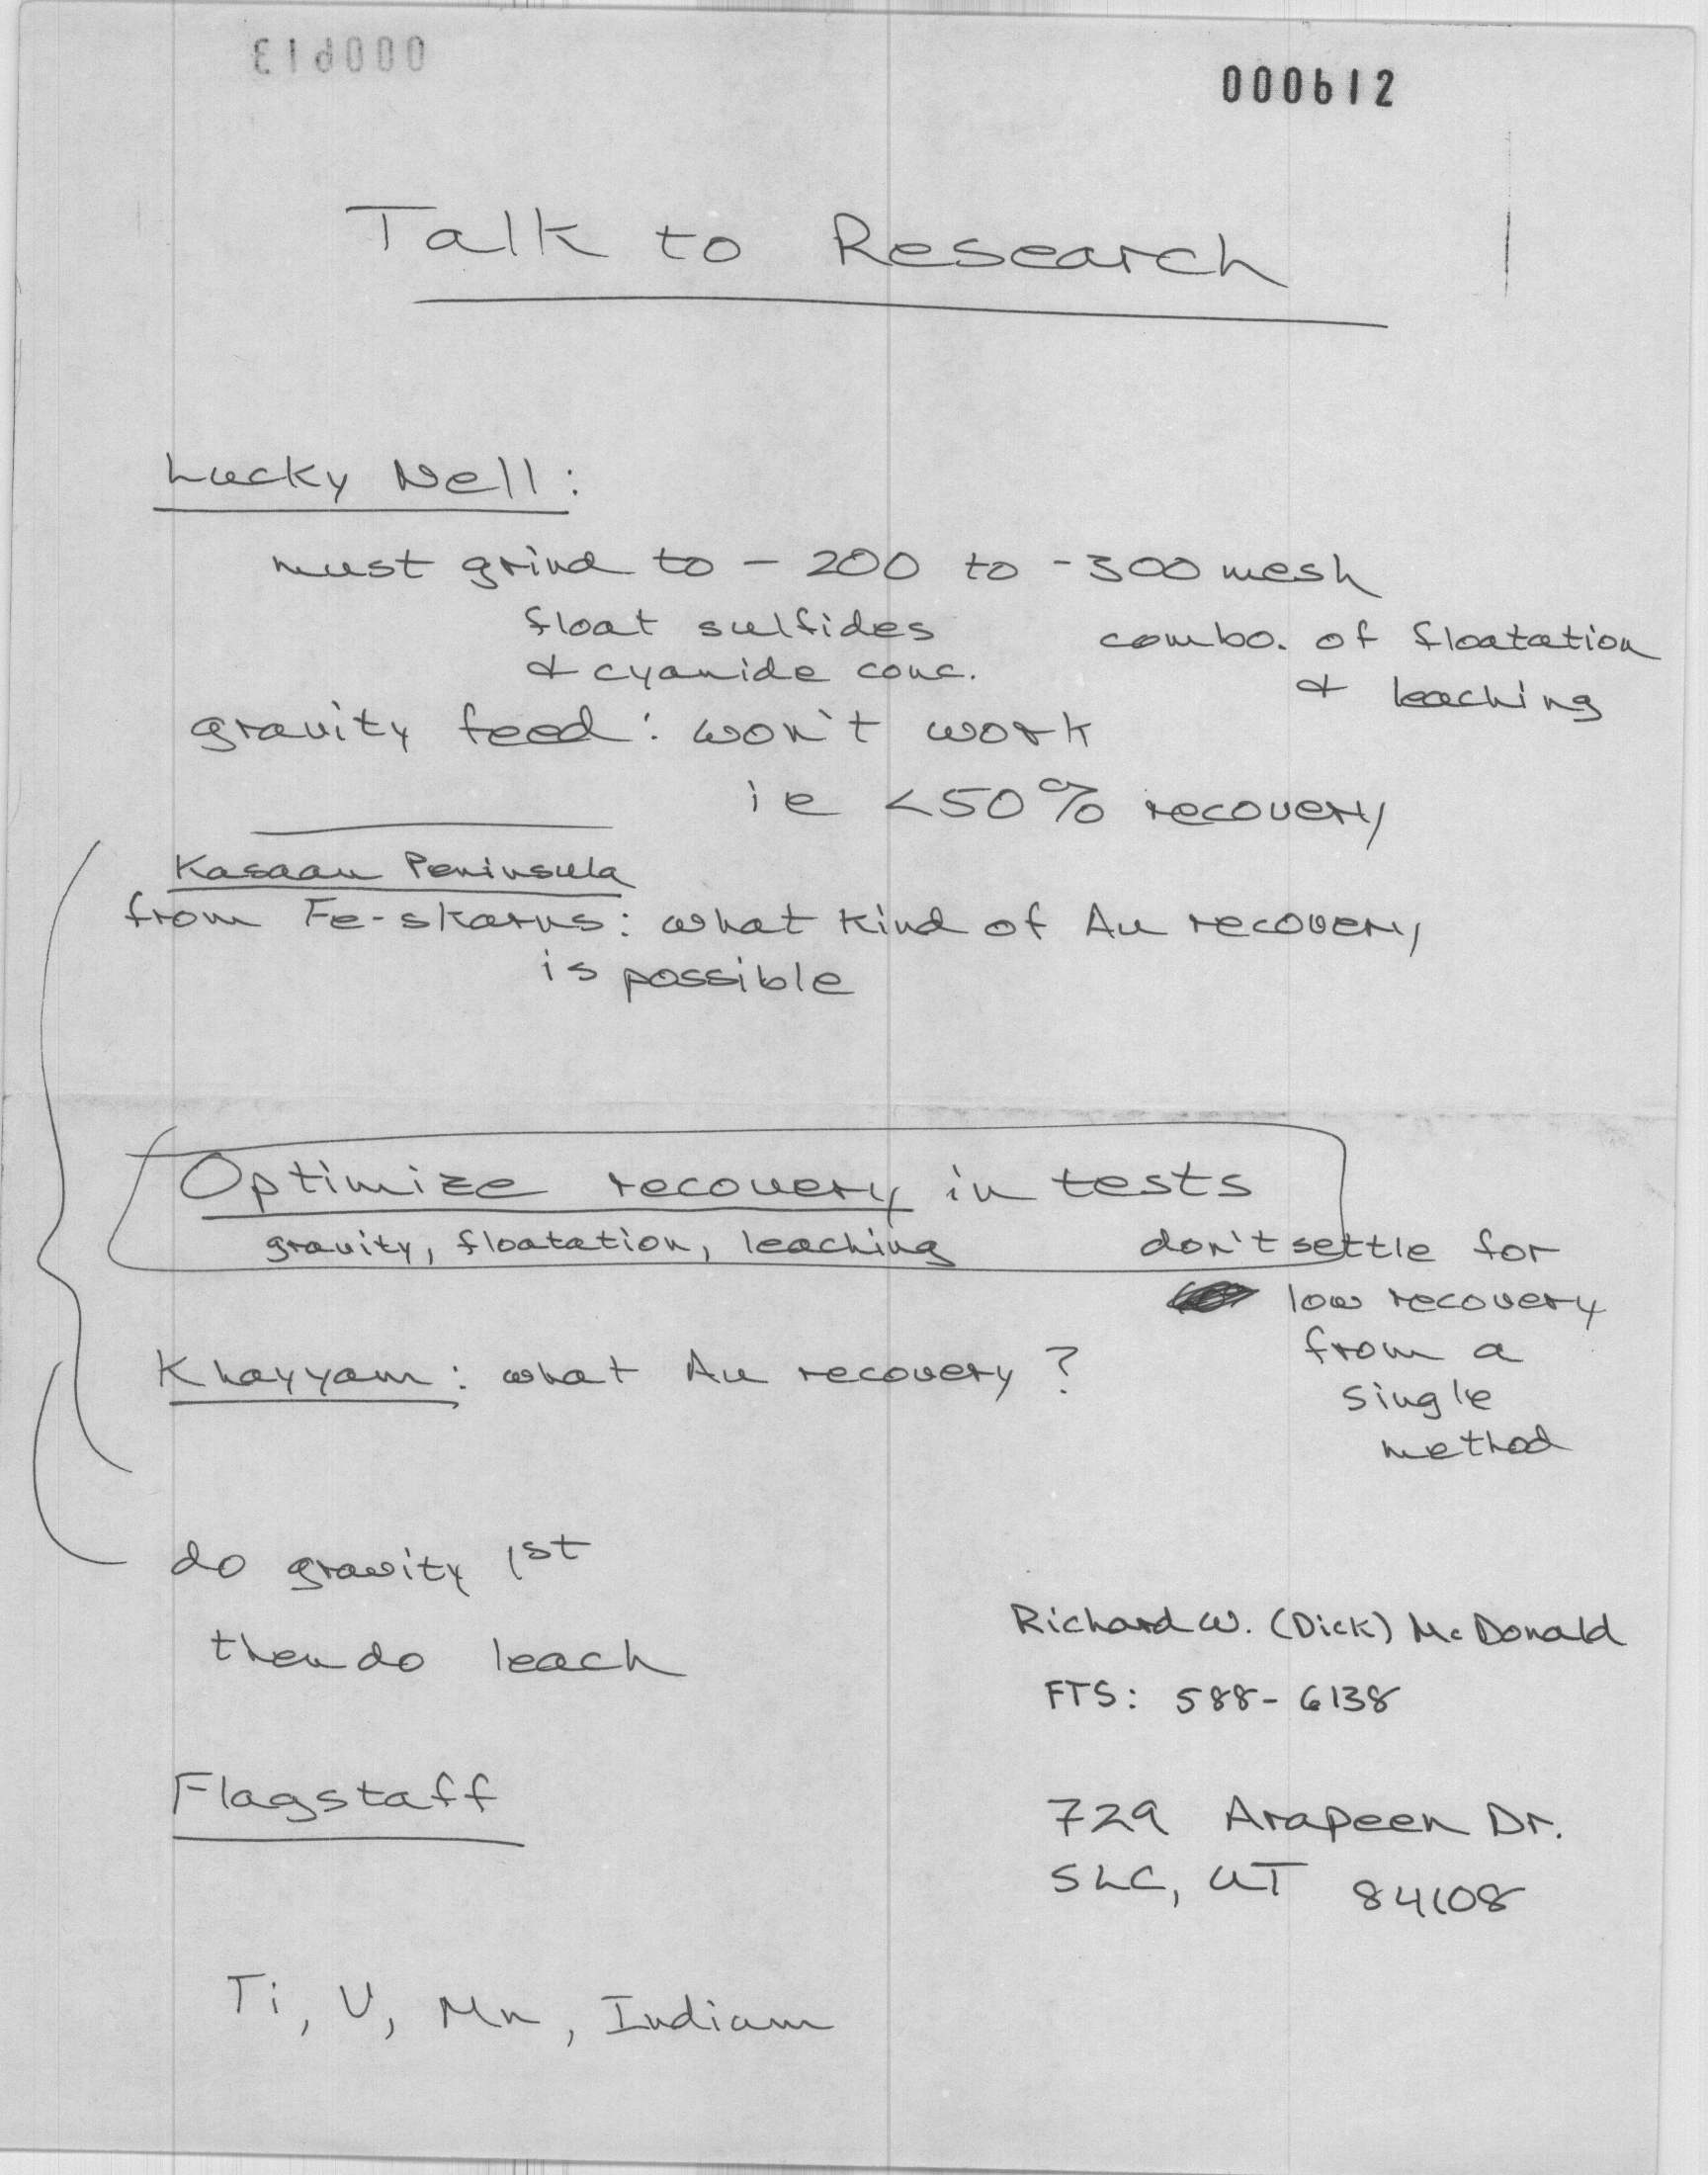 000613
000612
Talk to Research
Lucky Nell:
must grind to -200 to -300 mesh
float sulfides
& cyanide conc.
combo. of floatation
& leaching
gravity feed: won't work
ie <50% recovery
Kasaan Peninsula
from Fe-skarns: what kind of Au recovery
is possible
Optimize recovery in tests
gravity, floatation, leaching
don't settle for
low recovery
from a
single
method
Khayyam: what Au recovery?
do gravity 1st
then do leach
Richard W. (Dick) McDonald
FTS: 588-6138
Flagstaff
729 Arapeen Dr.
SLC, UT 84108
Ti, V, Mn, Indium